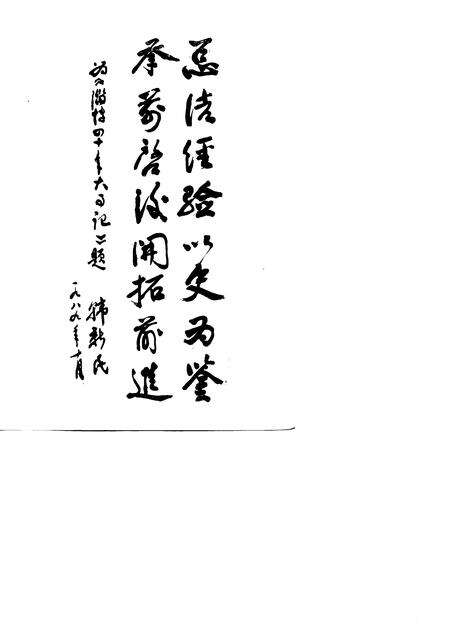 总结经验以史为鉴
承前启後開拓前進
为《 四十年大事记》题
韩新民
一九八九年十月